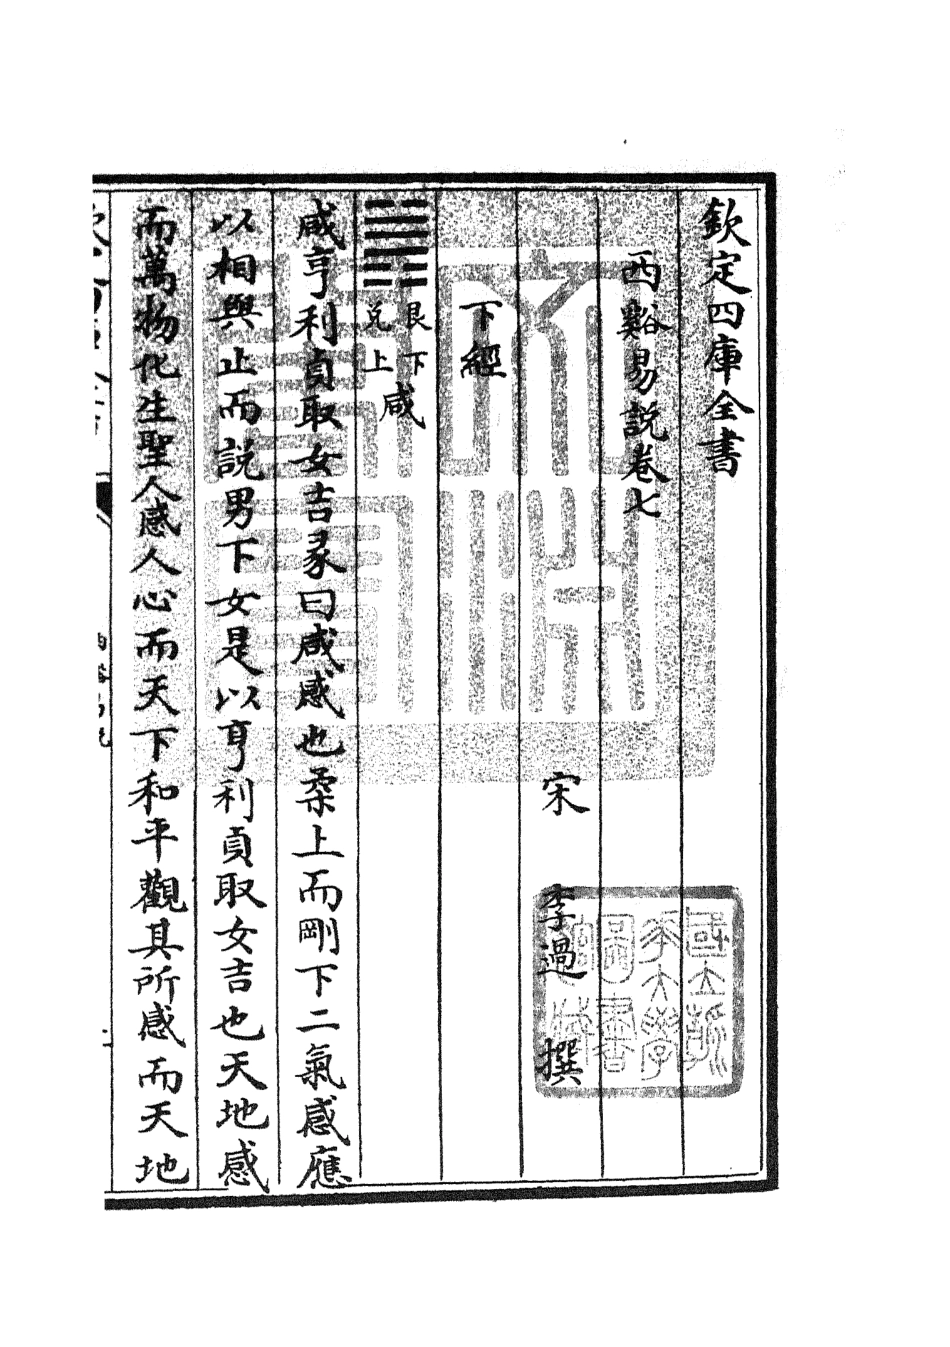 欽定四庫全書
西谿易説卷七
宋 李過 撰
下經
艮下
兌上
咸
咸亨利貞取女吉彖曰咸感也柔上而剛下二氣感應
以相與止而說男下女是以亨利貞取女吉也天地感
而萬物化生聖人感人心而天下和平觀其所感而天地